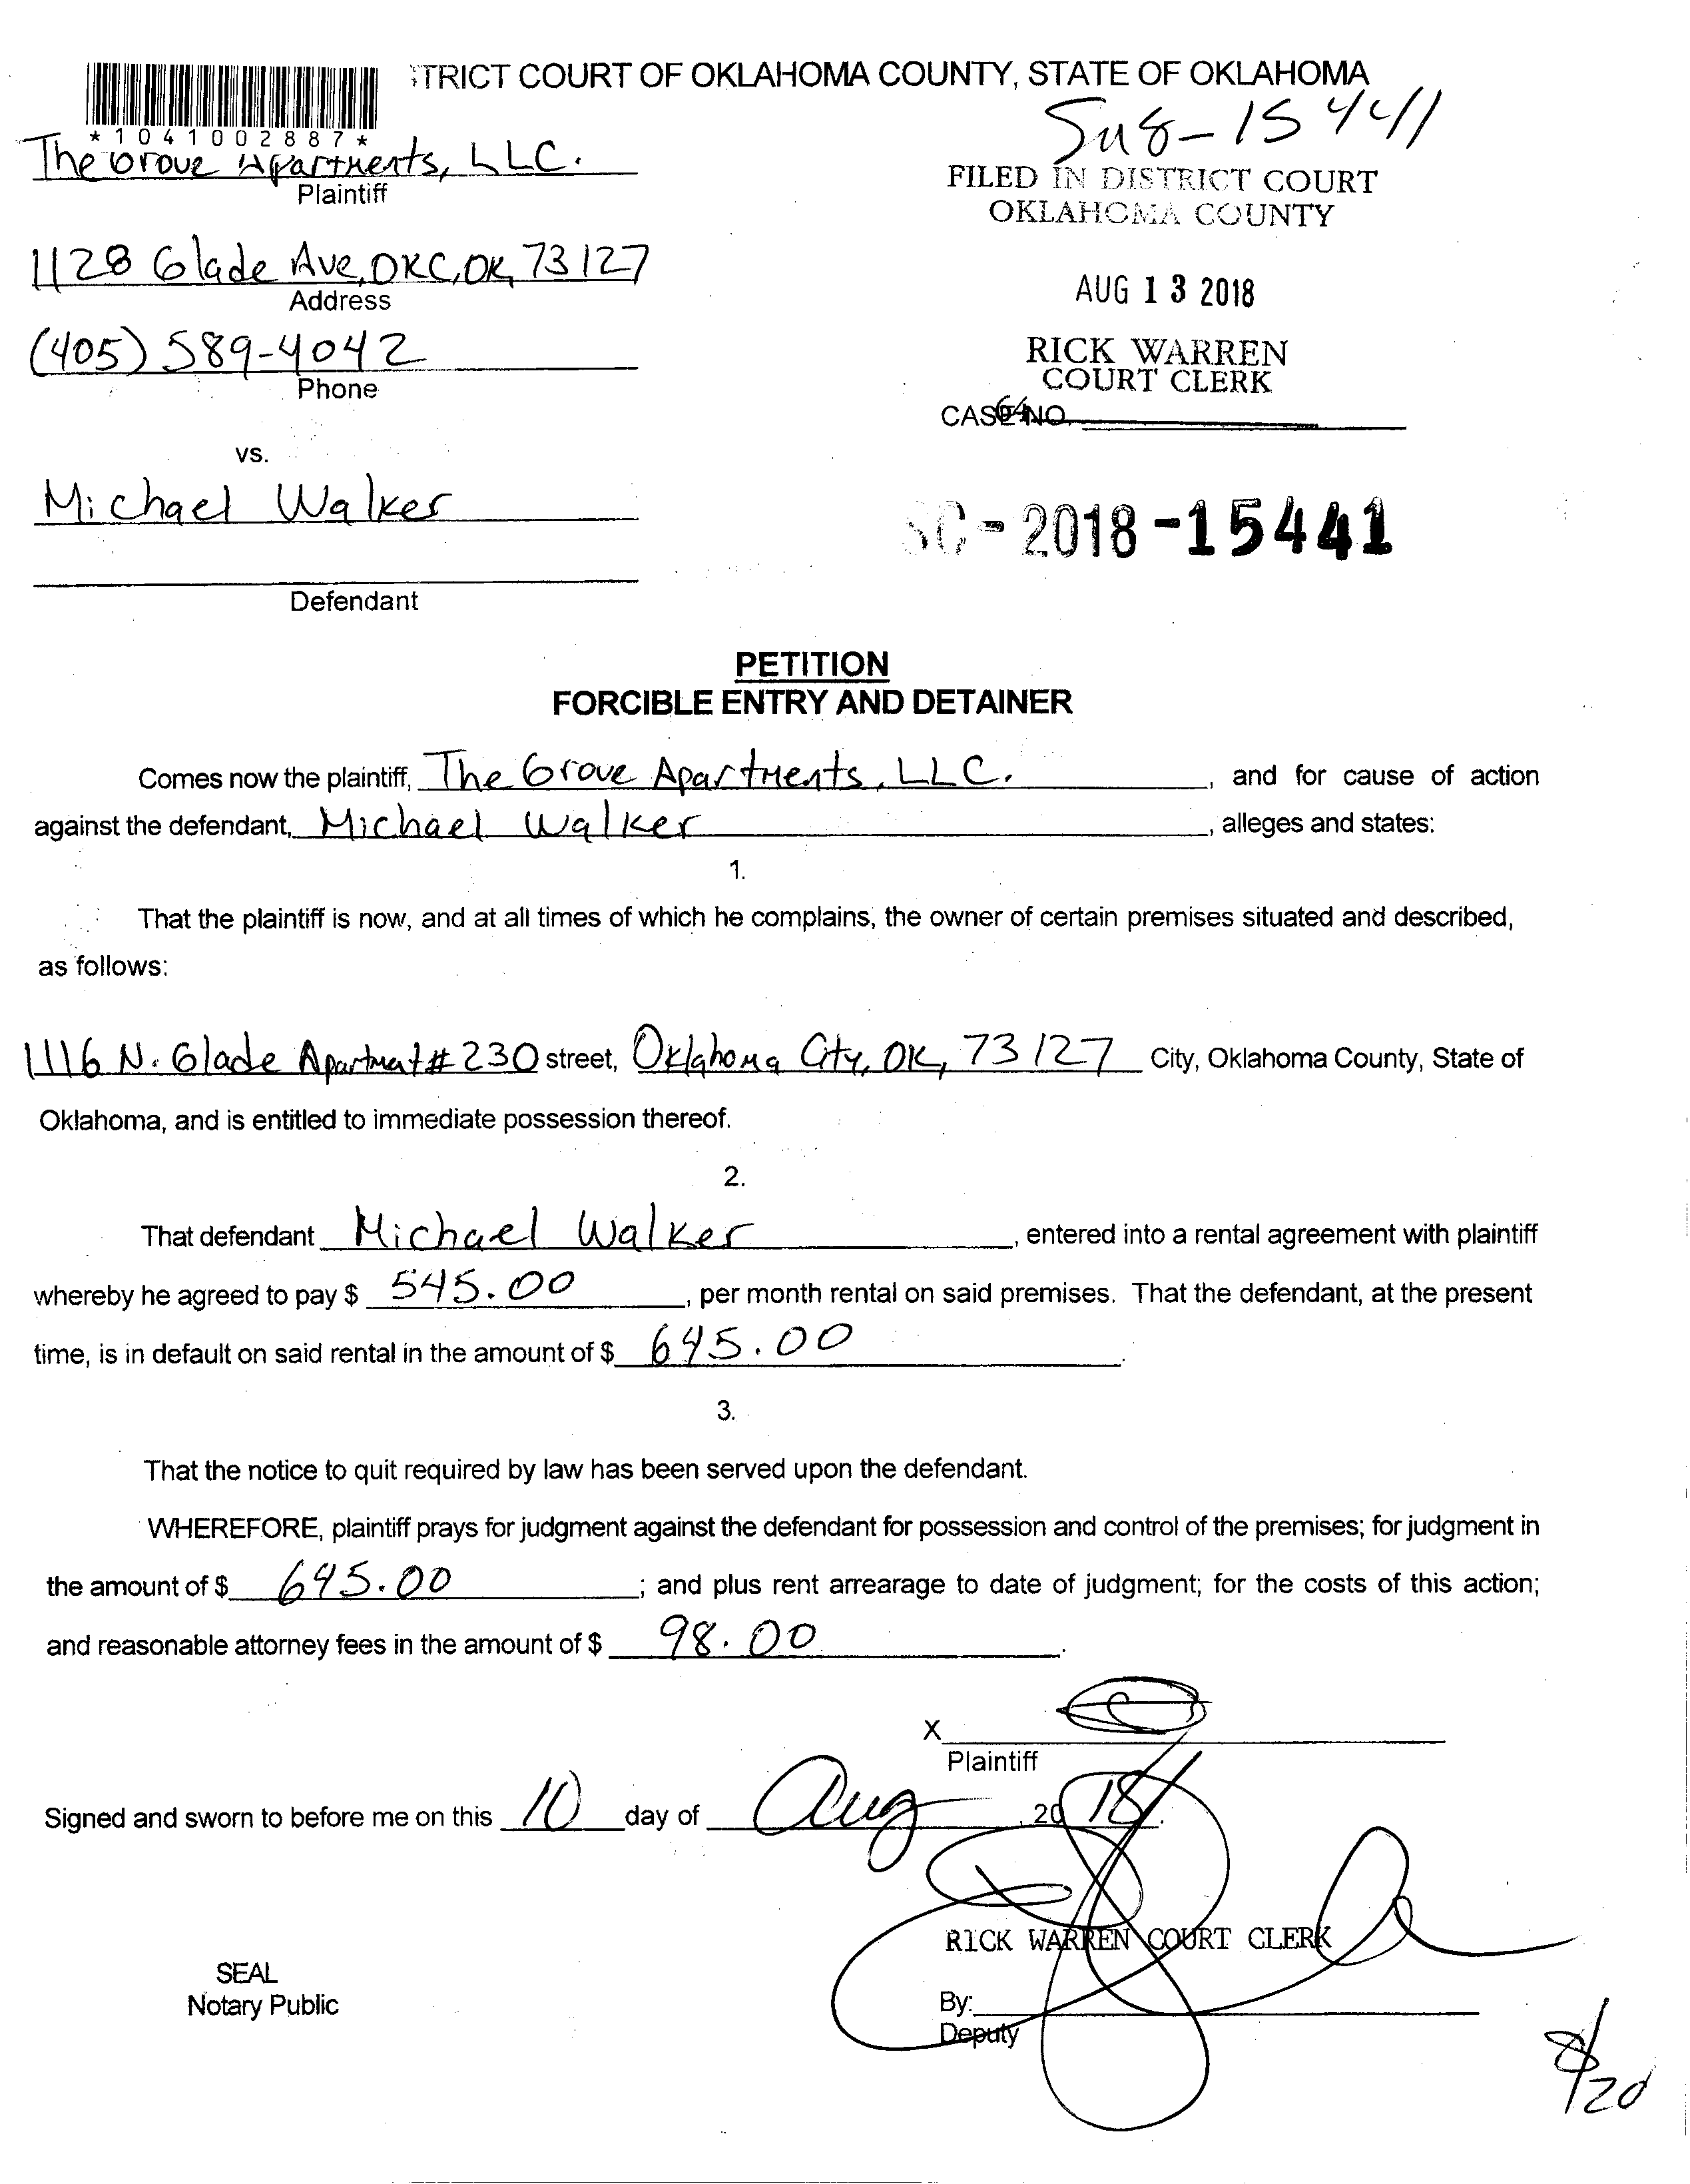 TRICT COURT OF OKLAHOMA COUNTY, STATE OF OKLAHOMA
*1041002887*
15441
The Grove Apartments, LLC.
Plaintiff
FILED IN DISTRICT COURT
OKLAHOMA COUNTY
1128 Glade Ave, OKC, OK, 73127
Address
AUG 13 2018
(405) 589-4042
Phone
RICK WARREN
COURT CLERK
CASE NO.
64
vs.
Michael Walker
SC-2018-15441
Defendant
PETITION
FORCIBLE ENTRY AND DETAINER
Comes now the plaintiff, The Grove Apartments, LLC. , and for cause of action
against the defendant, Michael Walker , alleges and states:
1.
That the plaintiff is now, and at all times of which he complains, the owner of certain premises situated and described,
as follows:
1116 N. Glade Apartment # 230 street, Oklahoma City, OK, 73127 City, Oklahoma County, State of
Oklahoma, and is entitled to immediate possession thereof.
2.
That defendant Michael Walker , entered into a rental agreement with plaintiff
whereby he agreed to pay $ 545.00 , per month rental on said premises. That the defendant, at the present
time, is in default on said rental in the amount of $ 645.00 .
3.
That the notice to quit required by law has been served upon the defendant.
WHEREFORE, plaintiff prays for judgment against the defendant for possession and control of the premises; for judgment in
the amount of $ 645.00 ; and plus rent arrearage to date of judgment; for the costs of this action;
and reasonable attorney fees in the amount of $ 98.00 .
X
Plaintiff
Signed and sworn to before me on this 10 day of Aug , 2018.
RICK WARREN COURT CLERK
SEAL
Notary Public
By:
Deputy
8/20